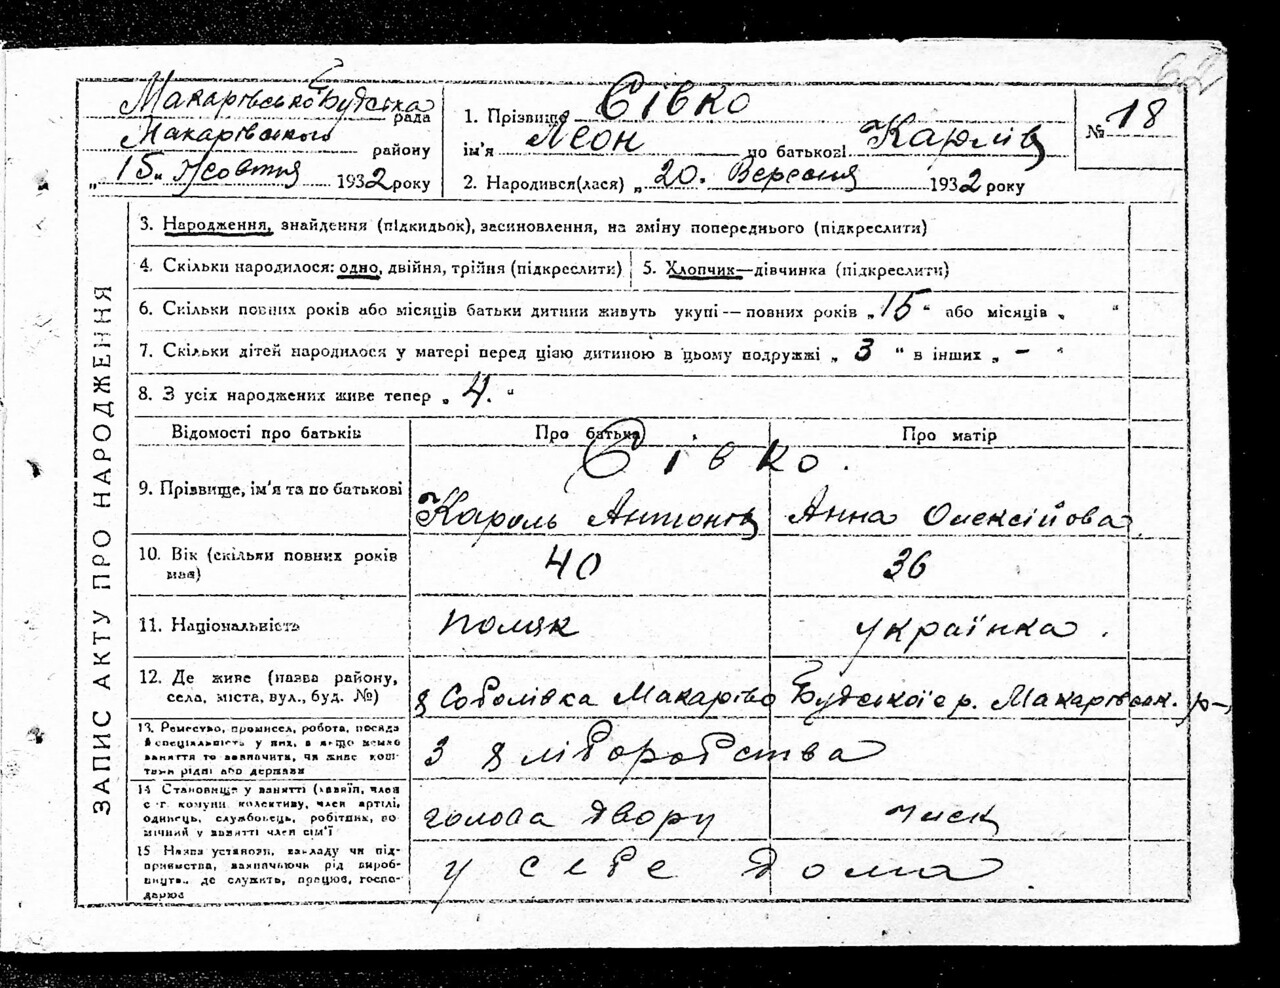 62
Макарівсько Будська рада
Макарівського району
„15„ Жовтня 1932 року
1. Прізвище Сівко
ім'я Леон по батькові Карлів
2. Народився(лася) „20. Вересня 1932 року
№ 18
ЗАПИС АКТУ ПРО НАРОДЖЕННЯ
3. Народження, знайдення (підкидьок), засиновлення, на зміну попереднього (підкреслити)
4. Скільки народилося: одно, двійня, трійня (підкреслити)
5. Хлопчик—дівчинка (підкреслити)
6. Скільки повних років або місяців батьки дитини живуть укупі — повних років „15" або місяців „ "
7. Скільки дітей народилося у матері перед цією дитиною в цьому подружжі „3" в інших „-"
8. З усіх народжених живе тепер „4."
Відомості про батьків
Про батька
Про матір
Сівко.
9. Прізвище, ім'я та по батькові
Кароль Антонів
Анна Олексійова
10. Вік (скільки повних років має)
40
36
11. Національність
поляк
українка.
12. Де живе (назва району,
села, міста, вул., буд. №)
Соболівка Макаріво Будської с р. Макарівськ. р-
13. Ремество, промисел, робота, посада
й спеціяльність у них, а якщо немає
заняття то зазначити, чи живе кош-
тами рідні або держави
З хліборобства
14 Становище у занятті (хазяїн, член
с-г. комуни колективу, член артілі,
одинець, службовець, робітник, по
мічний у занятті член сім'ї
голова двору
член
15 Назва установи, закладу чи під-
приємства, зазначаючи рід вироб-
ництв. де служить, працює, госпо-
дарює
у себе дома.